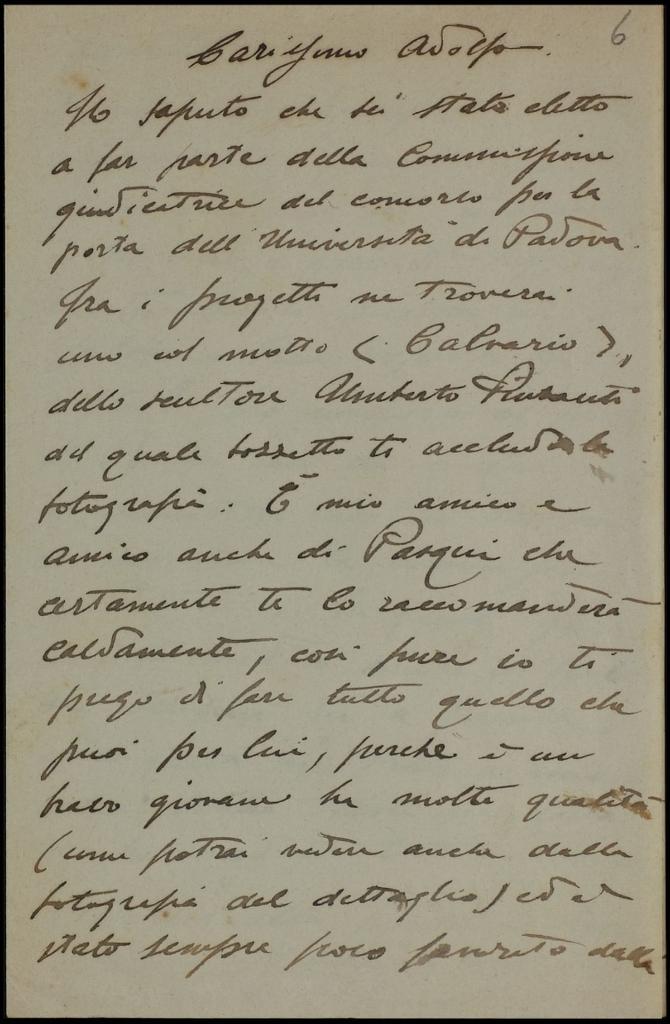 6
Carissimo Adolfo.
Ho saputo che sei stato eletto
a far parte della Commissione
giudicatrice del concorso per la
porta dell'Università di Padova.
Fra i progetti ne troverai
uno col motto (Calvario),
dello scultore Umberto
del quale bozzetto ti accludo la
fotografia. È mio amico e
amico anche di Pasqui che
certamente te lo raccomanderà
caldamente, così pure io ti
prego di fare tutto quello che
puoi per lui, perché è un
bravo giovane ha molte qualità
(come potrai vedere anche dalla
fotografia del dettaglio) ed è
stato sempre poco favorito dalla